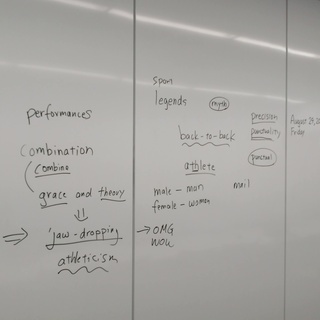 performances
Combination
Combine
grace and theory
⇓
⇒ 'jaw-dropping
athleticism
span
legends myth
precision
back-to-back punctuality
punctual
athlete
male - man mail
female - woman
→ OMG
wow
August 23, 20
Friday